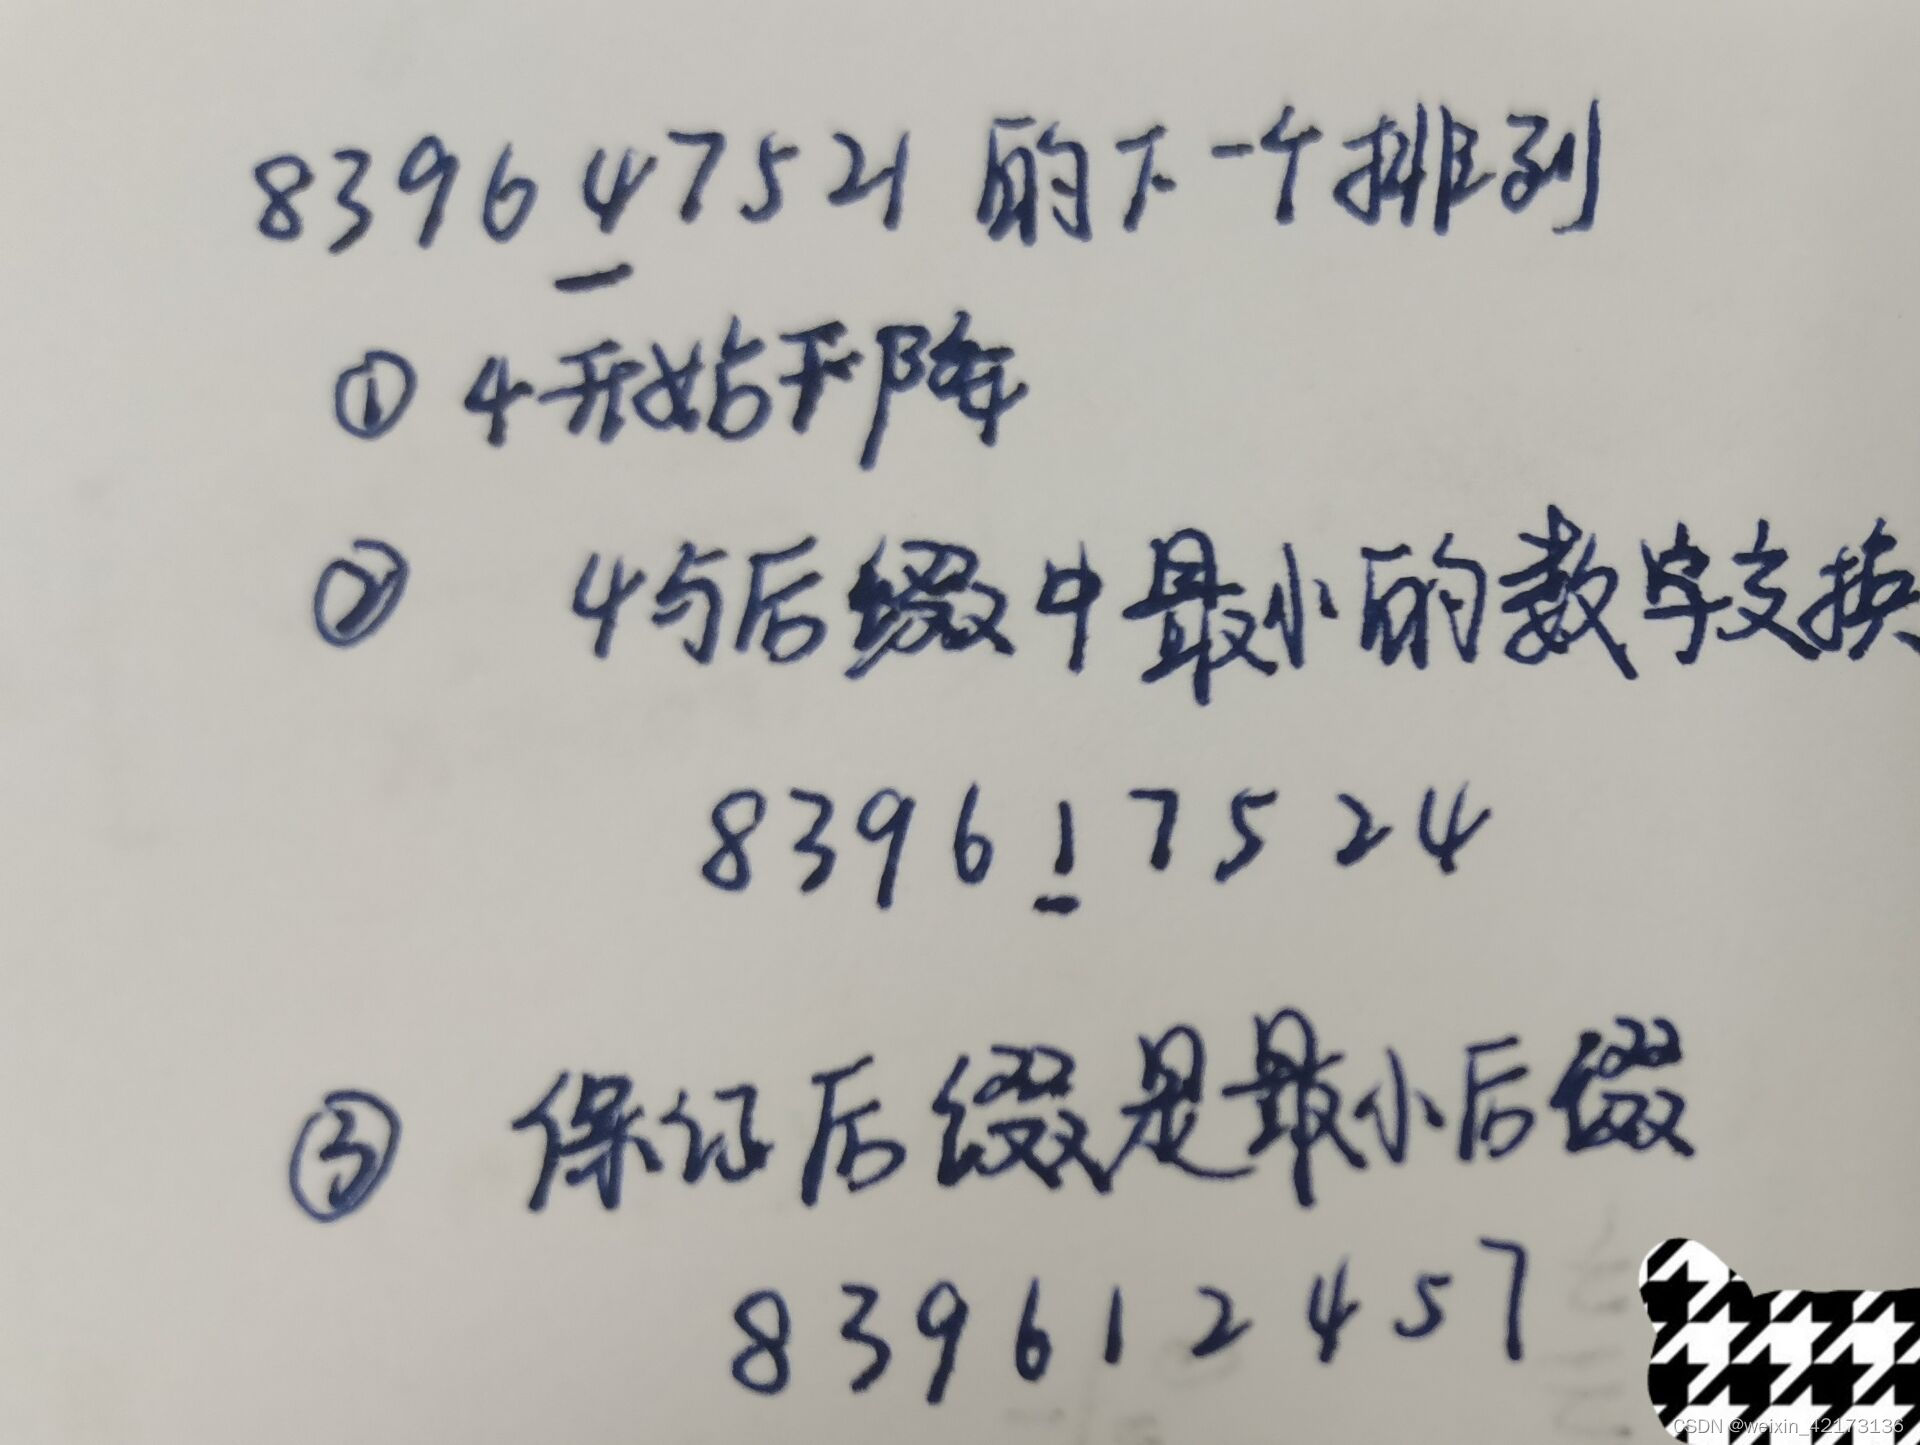 839647521的下一个排列
① 4开始下降
② 4与后缀中最小的数字交换
839617524
③ 保证后缀是最小后缀
839612457
CSDN @weixin_42173136